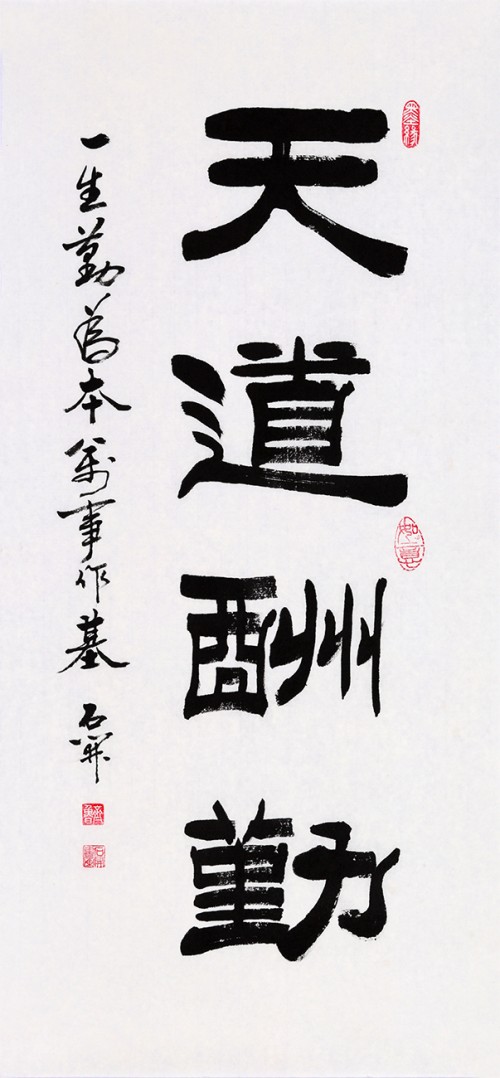 天道酬勤
一生勤為本萬事作基 石
如意